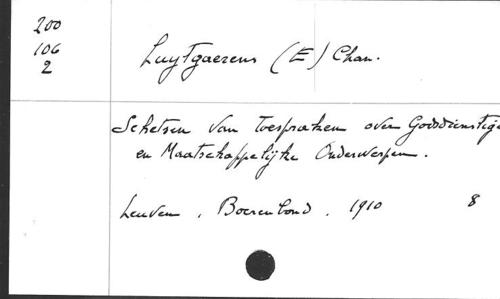 200
106
2
Luytgaerens (E) Chan.
Schetsen van toespraken over Godsdienstige
en Maatschappelijke Onderwerpen.
Leuven, Boerenbond. 1910 8